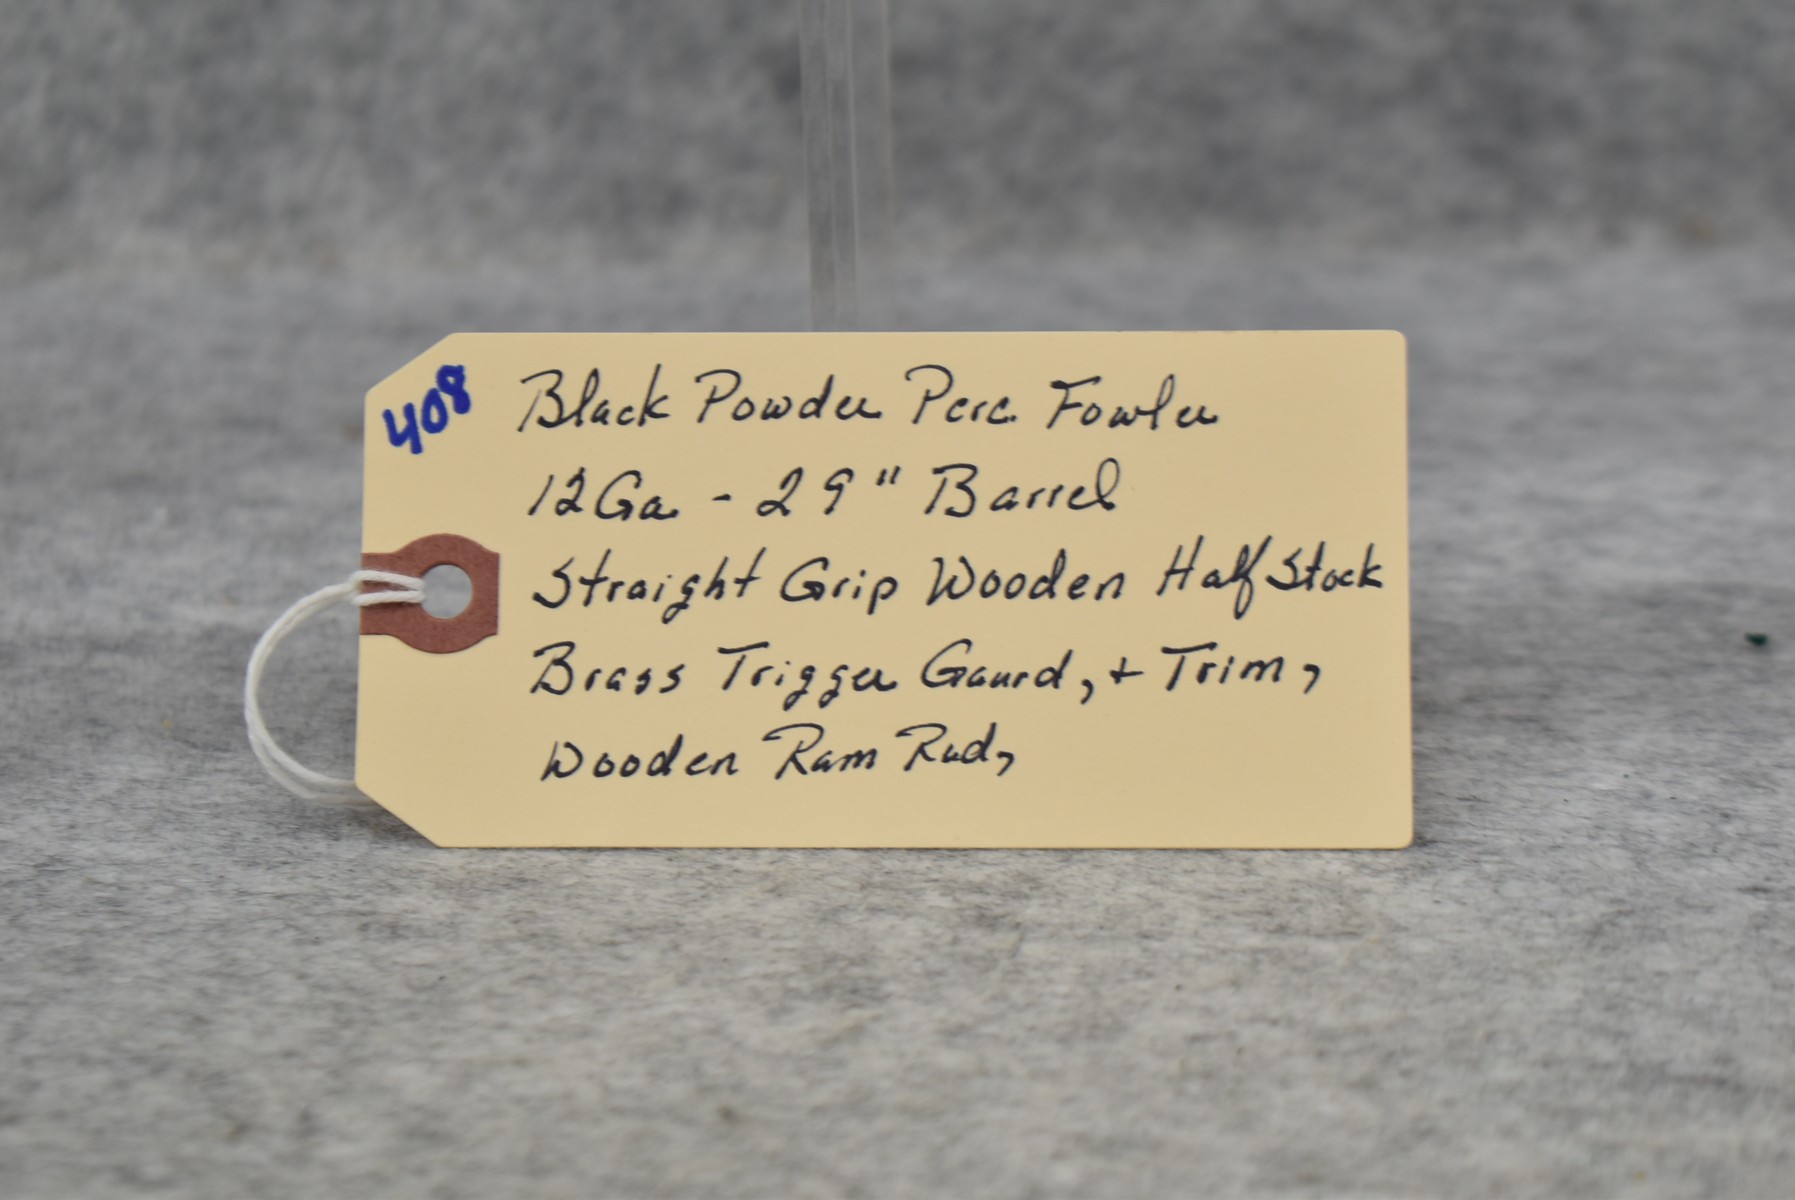 408
Black Powder Perc. Fowler
12Ga - 29" Barrel
Straight Grip Wooden Half Stock
Brass Trigger Gaurd, + Trim,
Wooden Ram Rod,